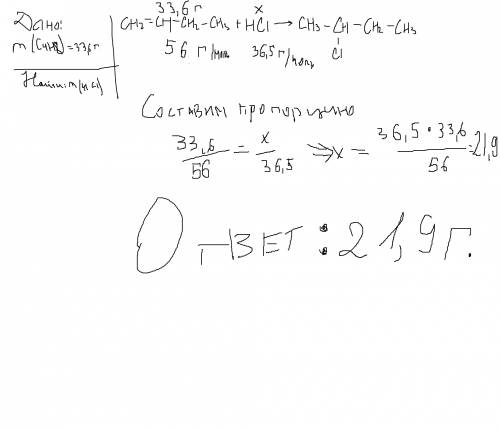 Дано:
m(C4H8)=33,6г
Найти: m(HCl)
33,6 г x
CH2=CH-CH2-CH3 + HCl → CH3-CH-CH2-CH3
Cl
56 г/моль 36,5г/моль
Составим пропорцию
33,6/56 = x/36,5 ⇒ x = 36,5·33,6/56 = 21,9
Ответ: 21,9 г.